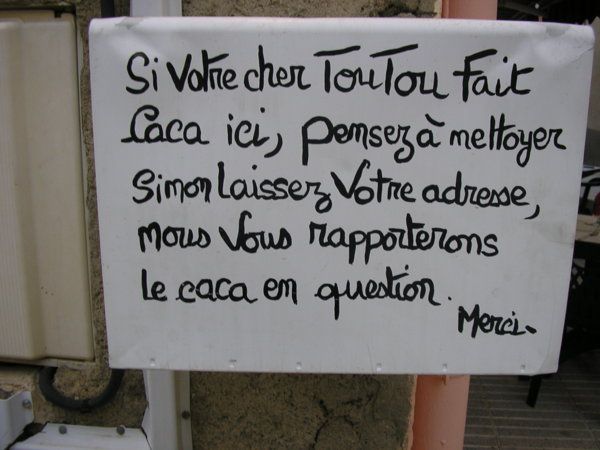 Si Votre cher TouTou Fait
Caca ici, pensez à nettoyer
Sinon Laissez Votre adresse,
nous Vous rapporterons
Le caca en question.
Merci-